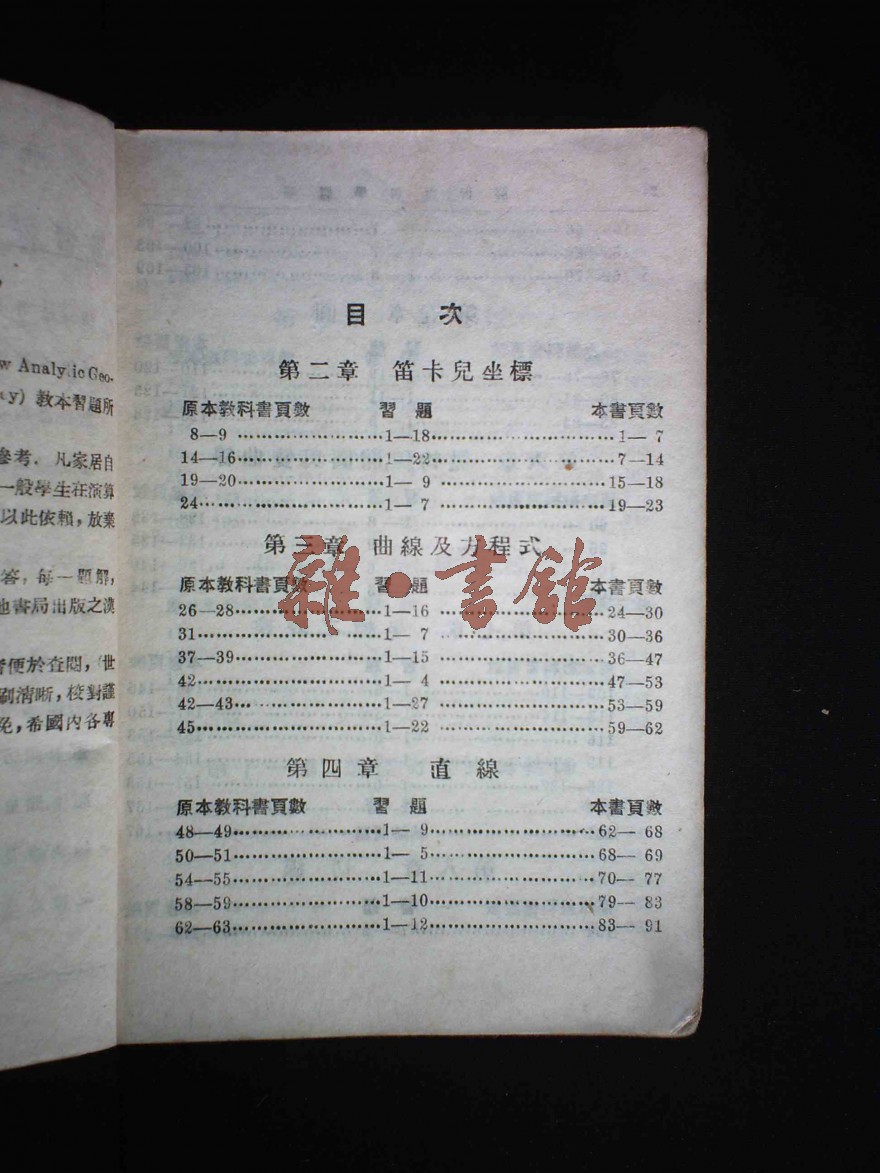 w Analytic Geo-
y) 教本習題所
參考．凡家居自
一般學生在演算
以此依賴，放棄
答，每一題解，
他書局出版之漢
便於查閱，世
刷清晰，校對謹
免，希國內各專
目 次
第二章 笛卡兒坐標
原本教科書頁數 習題 本書頁數
8—9 ………………1—18………………1— 7
14—16………………1—22………………7—14
19—20………………1— 9 ………………15—18
24………………1— 7 ………………19—23
第三章 曲線及方程式
原本教科書頁數 習題 本書頁數
26—28………………1—16 ………………24—30
31………………1— 7 ………………30—36
37—39………………1—15 ………………36—47
42………………1— 4 ………………47—53
42—43………………1—27 ………………53—59
45………………1—22 ………………59—62
雜·書館
第四章 直線
原本教科書頁數 習題 本書頁數
48—49………………1— 9………………62— 68
50—51………………1— 5………………68— 69
54—55………………1—11………………70— 77
58—59………………1—10………………79— 83
62—63………………1—12………………83— 91